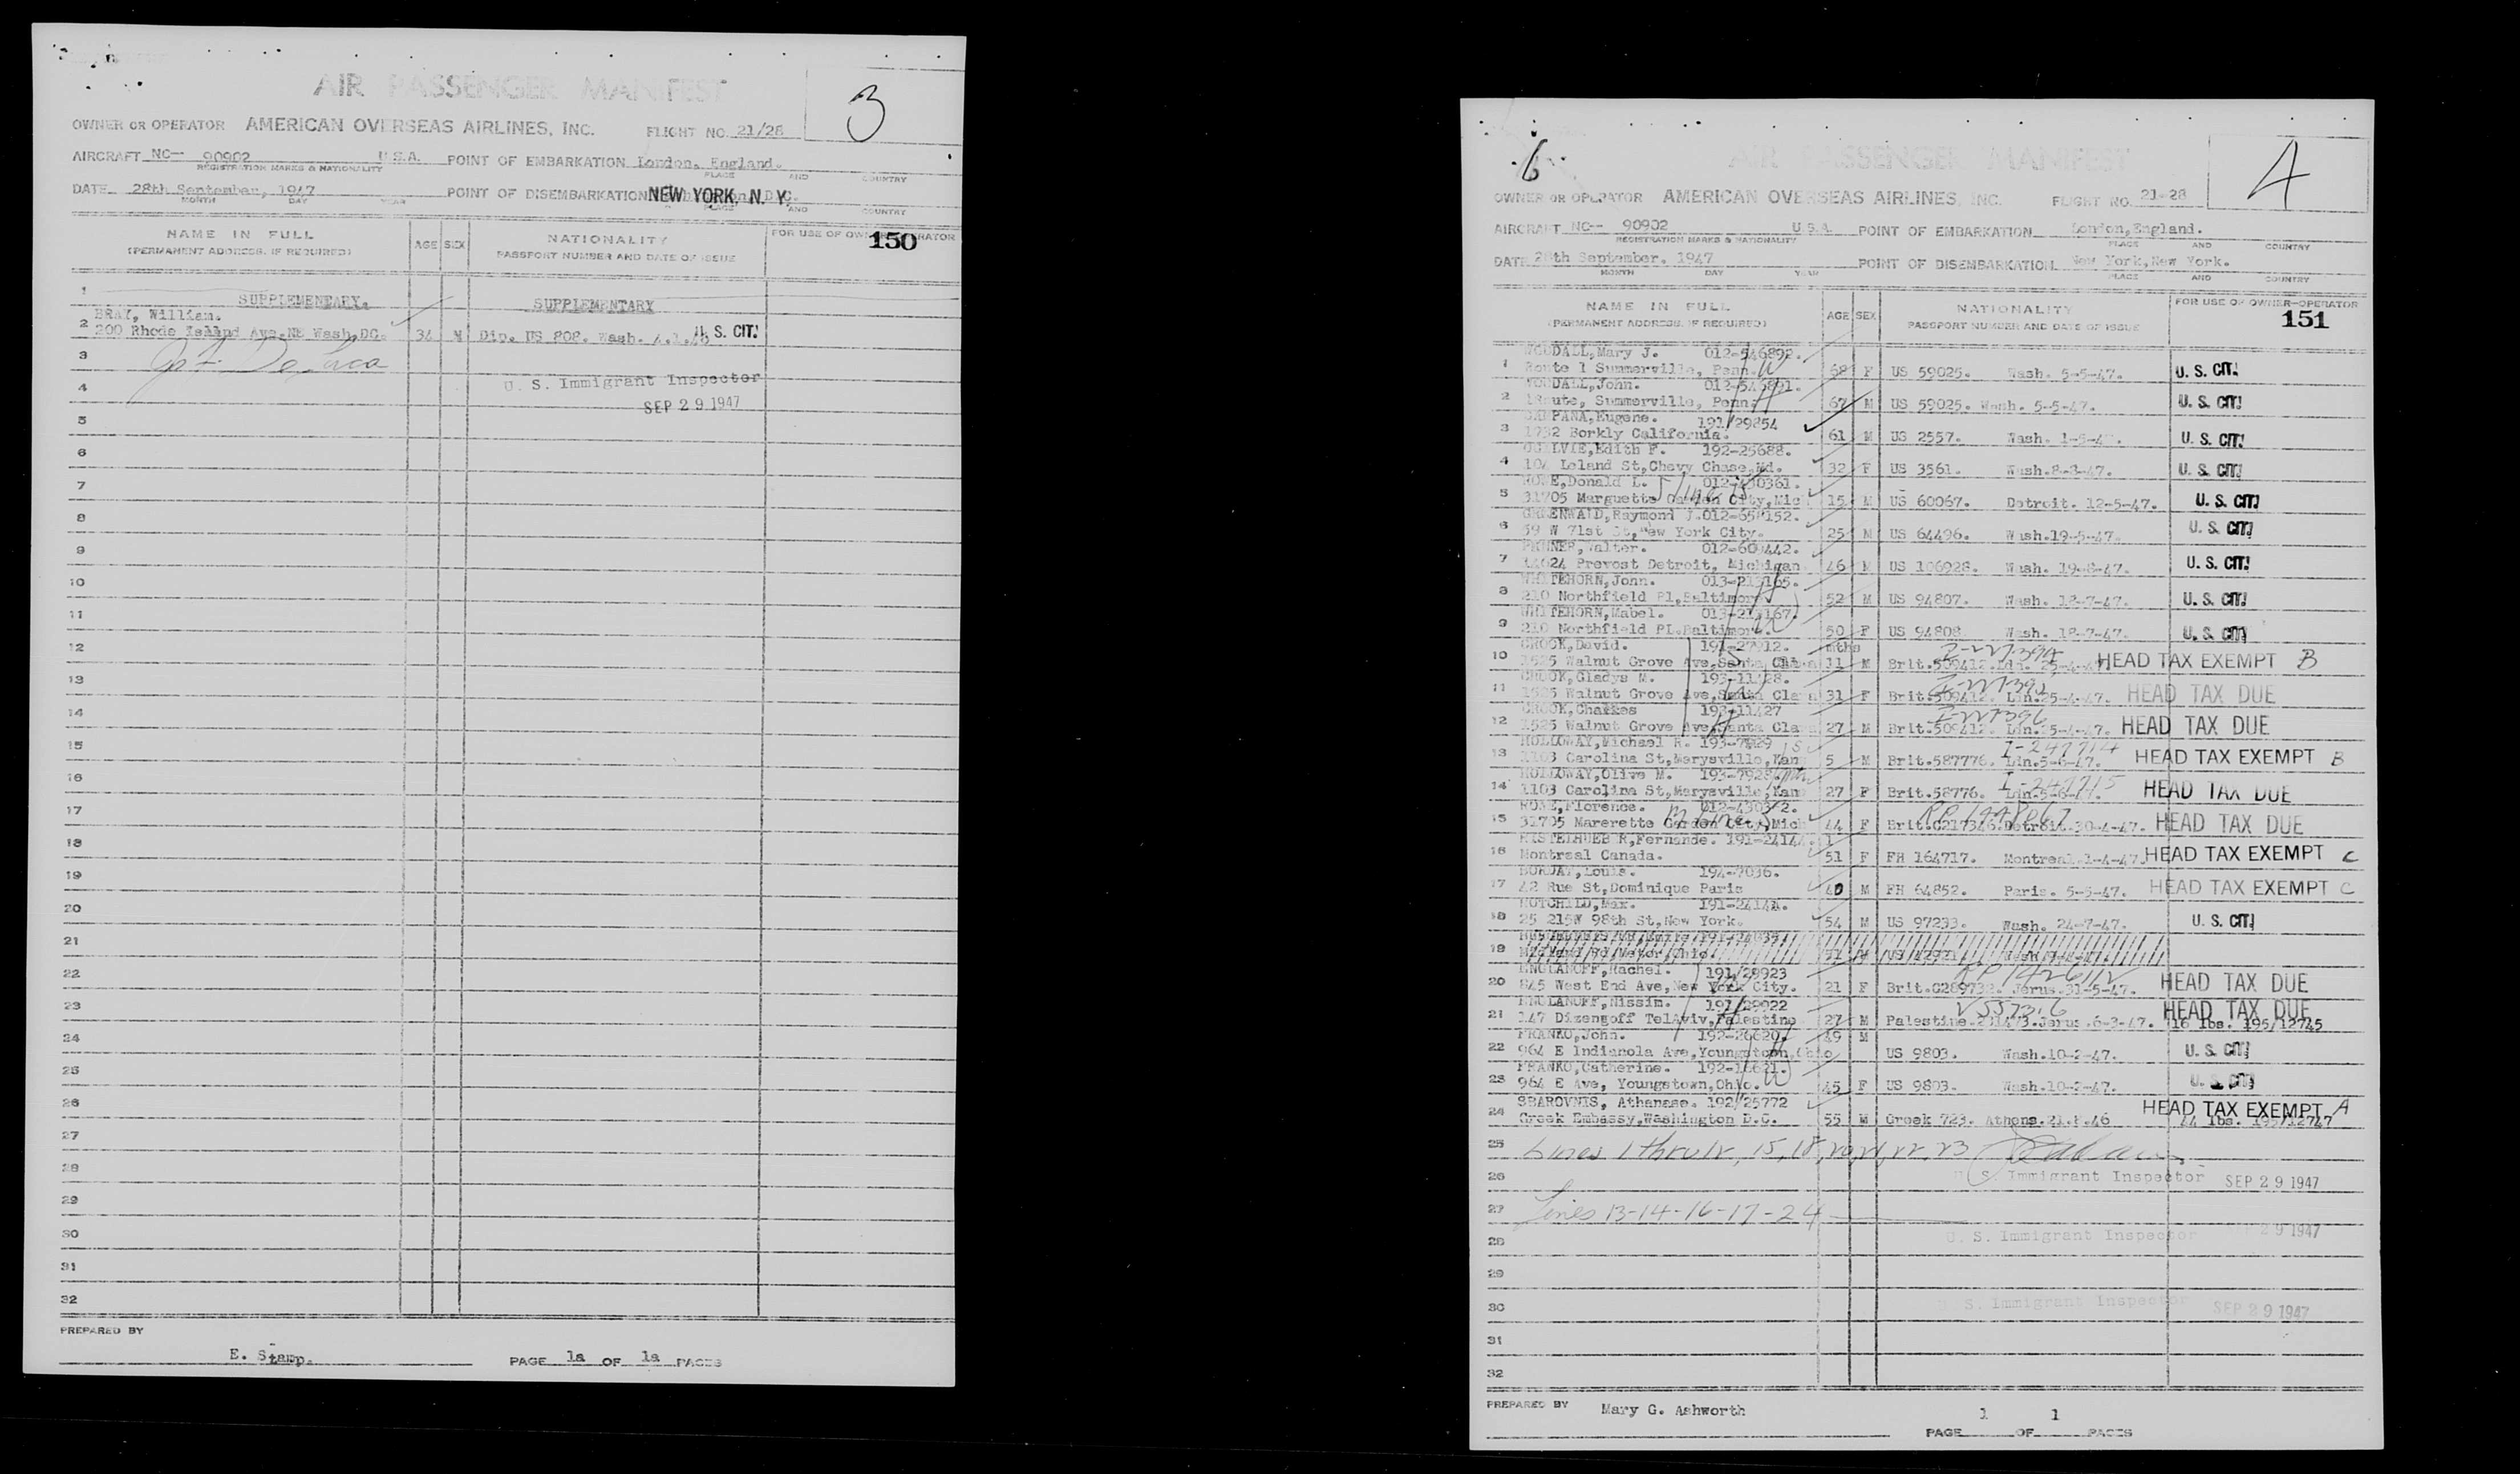 AIR PASSENGER MANIFEST
3
OWNER OR OPERATOR AMERICAN OVERSEAS AIRLINES, INC. FLIGHT NO. 21/28
AIRCRAFT NC-- 90902 U.S.A. POINT OF EMBARKATION London, England.
REGISTRATION MARKS & NATIONALITY PLACE AND COUNTRY
DATE 28th September, 1947 POINT OF DISEMBARKATION NEW YORK, N. Y.
MONTH DAY YEAR PLACE AND COUNTRY
NAME IN FULL AGE SEX NATIONALITY FOR USE OF OWNER-OPERATOR
150
(PERMANENT ADDRESS, IF REQUIRED) PASSPORT NUMBER AND DATE OF ISSUE
1 SUPPLEMENTARY. SUPPLEMENTARY
BRAY, William.
2 200 Rhode Island Ave.NE Wash,DC. 34 M Dip. US 808. Wash. U. S. CIT.
3
4 U. S. Immigrant Inspector
SEP 29 1947
5
6
7
8
9
10
11
12
13
14
15
16
17
18
19
20
21
22
23
24
25
26
27
28
29
30
31
32
PREPARED BY
E. Stamp. PAGE 1a OF 1a PAGES
6
AIR PASSENGER MANIFEST
4
OWNER OR OPERATOR AMERICAN OVERSEAS AIRLINES, INC. FLIGHT NO. 21-28
AIRCRAFT NC-- 90902 U.S.A. POINT OF EMBARKATION London,England.
REGISTRATION MARKS & NATIONALITY PLACE AND COUNTRY
DATE 28th September. 1947 POINT OF DISEMBARKATION New York,New York.
MONTH DAY YEAR PLACE AND COUNTRY
NAME IN FULL AGE SEX NATIONALITY FOR USE OF OWNER-OPERATOR
(PERMANENT ADDRESS, IF REQUIRED) PASSPORT NUMBER AND DATE OF ISSUE 151
WOODALL,Mary J. 012-546892.
1 Route 1 Summerville, Penn. 68 F US 59025. Wash. 5-5-47. U. S. CIT.
WOODALL,John. 012-546891.
2 1Route, Summerville, Penn. 67 M US 59025. Wash. 5-5-47. U. S. CIT.
Eugene. 191/29854
3 1732 Borkly California. 61 M US 2557. Wash. U. S. CIT.
OGILVIE,Edith F. 192-25688.
4 104 Leland St,Chevy Chase,Md. 32 F US 3561. Wash.8-8-47. U. S. CIT.
Donald L. 012-430361.
5 31705 Marguette Garden City,Mic 15 M US 60067. Detroit. 12-5-47. U. S. CIT.
GREENWALD,Raymond J.012-658152.
6 59 W 71st St,New York City. 25 M US 64496. Wash.19-5-47. U. S. CIT.
Walter. 012-609442.
7 Prevost Detroit, Michigan 46 M US 106928. Wash. 19-8-47. U. S. CIT.
WHITEHORN,John. 013-213165.
8 210 Northfield Pl,Baltimore 52 M US 94807. Wash. 18-7-47. U. S. CIT.
WHITEHORN,Mabel. 013-213167.
9 210 Northfield Pl.Baltimore. 50 F US 94808 Wash. 18-7-47. U. S. CIT.
CROOK,David. 191-27912. mths
10 1525 Walnut Grove Ave,Santa Clara 11 M Brit.509412.Ldn. HEAD TAX EXEMPT B
CROOK,Gladys M. 193-11428.
11 1525 Walnut Grove Ave,Santa Clara 31 F Brit.509412. Ldn.25-4-47. HEAD TAX DUE
CROOK,Charles 193-11427
12 1525 Walnut Grove Ave,Santa Cla 27 M Brit.509412. Ldn.25-4-47. HEAD TAX DUE
HOLLOWAY,Michael R. 193-7929 I-247714
13 1103 Carolina St,Marysville,Kan 5 M Brit.587776. Ldn.5-6-47. HEAD TAX EXEMPT B
HOLLOWAY,Olive M. 193-7928 I-247715
14 1103 Carolina St,Marysville,Kan 27 F Brit.58776. HEAD TAX DUE
Florence. 012-430372.
15 Garden City,Mich 44 F Detroit.30-4-47. HEAD TAX DUE
Fernande. 191-24144.
16 Montreal Canada. 51 F FH 164717. Montreal.1-4-47. HEAD TAX EXEMPT C
Louis. 194-7036.
17 42 Rue St,Dominique Paris 40 M FH 64852. Paris. 5-5-47. HEAD TAX EXEMPT C
Max. 191-24141.
18 25 215W 98th St,New York. 54 M US 97233. Wash. 24-7-47. U. S. CIT.
19
ENGLANOFF,Rachel. 191/29923
20 845 West End Ave,New York City. 21 F Jerus.31-5-47. HEAD TAX DUE
ENGLANOFF,Nissim. 191/29922
21 147 Dizengoff TelAviv,Palestine 27 M Palestine. Jerus.6-3-47. HEAD TAX DUE
16 lbs. 195/12745
FRANKO,John. 192-26620. 49 M
22 964 E Indianola Ave,Youngstown,Ohio US 9803. Wash.10-2-47. U. S. CIT.
FRANKO,Catherine.
23 964 E Ave, Youngstown,Ohio. 45 F US 9803. Wash.10-2-47. U. S. CIT.
SBAROVNIS, Athanase. 192/25772 HEAD TAX EXEMPT A
24 Greek Embassy,Washington D.C. 55 M Greek 723. Athens.21.8.46 44 lbs. 195/12747
25 Lines 1 thru 12, 15, 18, 20, 21, 22, 23
26 U. S. Immigrant Inspector SEP 29 1947
27 Lines 13-14-16-17-24
28 U. S. Immigrant Inspector SEP 29 1947
29
30 U. S. Immigrant Inspector SEP 29 1947
31
32
PREPARED BY Mary G. Ashworth
PAGE 1 OF 1 PAGES